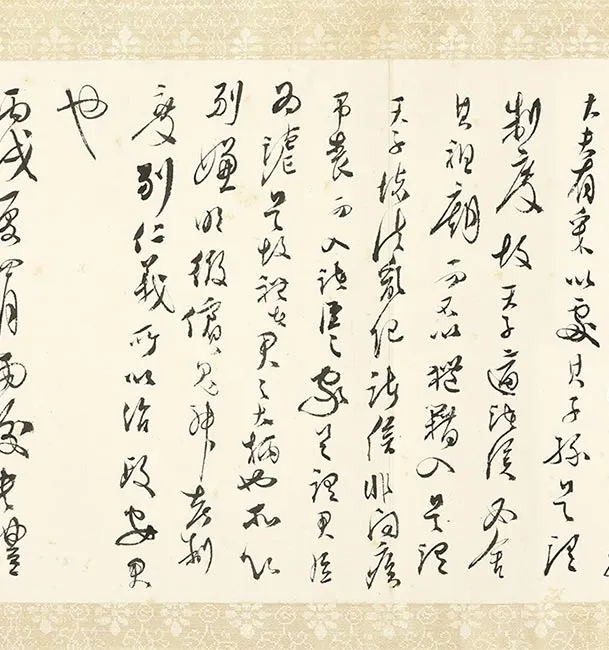 大夫有采以處其子孫是謂
制度故天子適諸侯必舍
其祖廟而不以禮籍入是謂
天子壞法亂紀諸侯非問疾
弔喪而入諸臣之家是謂君臣
為謔是故禮者君之大柄也所以
別嫌明微儐鬼神考制
度別仁義所以治政安君
也
丙戌夏四月雨後